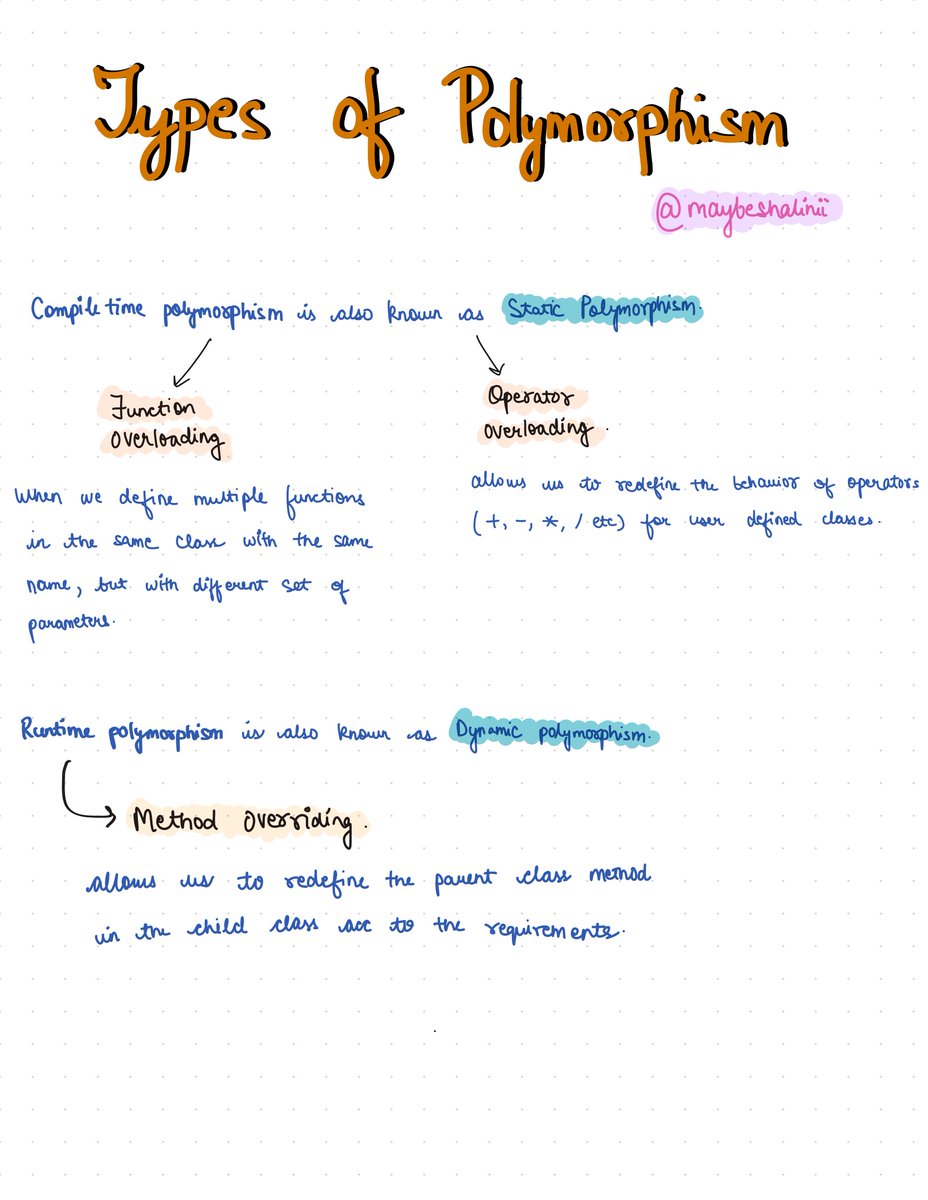 Types of Polymorphism
@maybeshalinii
Compile time polymorphism is also known as Static Polymorphism.
Function
Overloading
When we define multiple functions
in the same class with the same
name, but with different set of
parameters.
Operator
Overloading.
allows us to redefine the behavior of operators
(+, -, *, / etc) for user defined classes.
Runtime polymorphism is also known as Dynamic polymorphism.
Method Overriding.
allows us to redefine the parent class method
in the child class acc to the requirements.